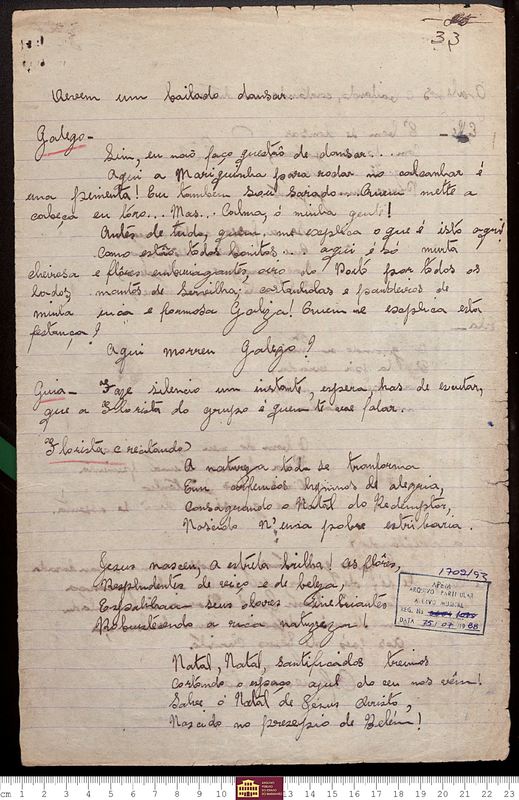 33
Vevem um bailado dansar.
Galego -
Sim, eu não faço questão de dansar....
Aqui a Mariquinha para rodar no calcanhar é
uma pimenta! Eu tambem sou sarado... Quem mette a
cabeça eu tóro... Mas.. Calma, ó minha gente!
Antes de tudo, quem me explica o que é isto aqui?
Como estão todos bonitos... aqui é só murta
cheirosa e flôres embriagantes, oiro do Porto por todos os
lados, mantos de Servilha; castanholas e pandeiros de
minha rica e formosa Galiza! Quem me explica esta
festança?
Aqui morreu Galego?
Guia - Faze silencio um instante, espera, has de escutar,
que a Florista do grupo é quem te vae falar.
Florista (recitando)
A natureza toda se tranforma
Em hymnos de alegria,
Consagrando o Natal do Redemptor,
Nascido N'uma pobre estribaria.
Jesus nasceu, a estrela brilha! as flôres,
Resplendentes de viço e de beleza,
seus olores
a rica natureza!
Natal, Natal, santificados treinos
Cortando o espaço azul do ceu nos vêm!
Salve ó Natal de Jésus christo,
Nascido no presepio de Belém!
1702/93
APEM
ARQUIVO PARTICULAR
ACERVO MUSICAL
REG. Nº
DATA 25/07/1988
cm 1 2 3 4 5 6 7 8 9 10 13 14 15 16 17 18 19 20 21 22 23
ARQUIVO
PÚBLICO
DO ESTADO
DO MARANHÃO